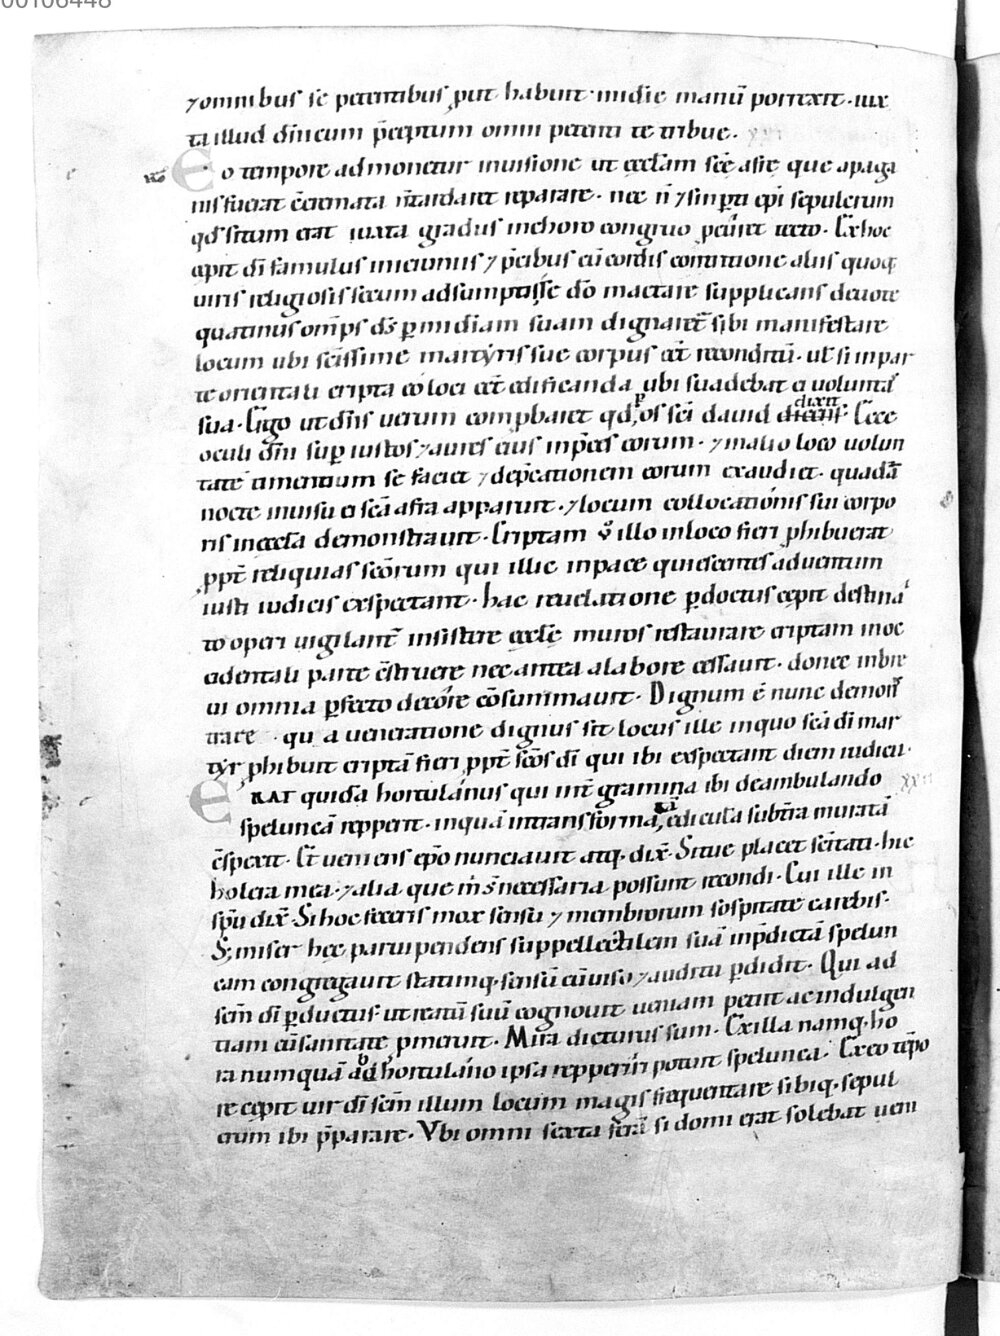 00106448
⁊omnibus se petentibus, put habuit· indie manū porrexit· iux
ta illud dn̄icum p̄ceptum omni petenti te tribue. xxi
Eo tempore admonetur inuisione ut ecclam scē afre que apaga
nis fuerat c̄cremata n̄tardaret reparare· nec n̄ ⁊ sinp̱ti ep̄i sepulcrum
qd̄ situm erat iuxta gradus inchoro congruo peūiret tecto· Ex hoc
cepit dī famulus inieiuniis ⁊ p̄cibus cū cordis contritione aliis quoq;
uiris religiosis secum adsumptis, se dō mactare supplicans deuote
quatinus om̄ps ds̄ p̱ mīdiam suam dignaret̄ sibi manifestare
locum ubi scīssime martyris sue corpus eēt reconditū· ut̄ si inpar
te orientali cripta eo loci eēt edificanda, ubi suadebat ei uoluntas
sua· Ergo ut dn̄s uerum comp̱baret qd, p̱ os scī dauid dixit Ecce
oculi dn̄i sup̱ iustos ⁊ aures eius inp̄ces eorum· ⁊ inalio loco uolun
tatē timentium se faciet ⁊ dep̄cationem eorum exaudiet· quadā
nocte inuisu ei scā afra apparuit· ⁊ locum collocationis sui corpo
ris inecclā demonstrauit· Criptam ṽ illo inloco fieri phibuerat
ppt̄ reliquias scōrum qui illic inpace quiescentes aduentum
iusti iudicis exspectant· hac reuelatione p̱doctus cepit destina
to operi uigilant̄ insistere eccl̄e muros restaurare criptam inoc
cidentali parte c̄struere nec antea alabore cessauit· donec inbre
ui omnia p̱fecto decore cōsummauit· Dignum ē nunc demonst
trare · qua ueneratione dignus sit locus ille inquo scā dī mar
tyr, phibuit criptā fieri ppt̄ scōs dī qui ibi exspectant diem iudicii·
ERAT quidā hortulanus qui int̄ gramina ibi deambulando xxii
speluncā repperit· inquā intrans formā, edicula subt̄ra muratā
c̄spexit· Et ueniens epō nunciauit atq; dix̄· Si tue placet scītati· hic
holera mea· ⁊ alia que m̄ s̄ necessaria possunt recondi· Cui ille in
spū dix̄· Si hoc feceris mox sensu ⁊ membrorum sospitate carebis·
S; miser hec paruipendens suppellectilem suā inp̄dictā spelun
cam congregauit statimq; sensū cū uisu ⁊ auditu p̱didit· Qui ad
scm̄ dī p̱ductus· ut reatū suū cognouit ueniam petiit ac indulgen
tiam cū sanitate, pmeruit· Mira dicturus sum· Ex illa namq; ho
ra numquā ab hortulano ipsa repperiri potuit spelunca· Ex eo tēpo
re cepit uir dī scm̄ illum locum magis frequentare sibiq; sepul
crum ibi p̄parare· Vbi omni sexta feria si domi erat solebat ueni